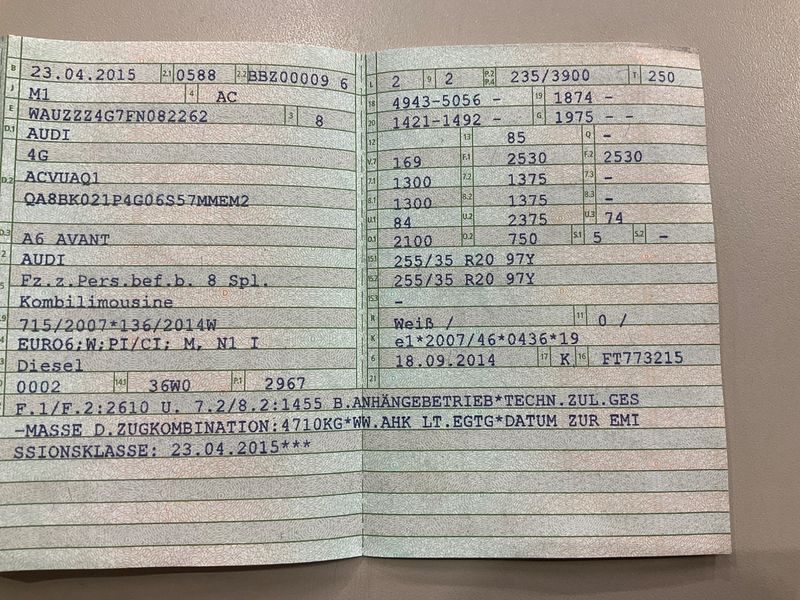 B 23.04.2015 2.1 0588 2.2 BBZ00009 6
J M1 4 AC
E WAUZZZ4G7FN082262 3 8
D.1 AUDI
4G
D.2 ACVUAQ1
QA8BK021P4G06S57MMEM2
D.3 A6 AVANT
2 AUDI
5 Fz.z.Pers.bef.b. 8 Spl.
Kombilimousine
V.9 715/2007*136/2014W
14 EURO6;W;PI/CI; M, N1 I
P.3 Diesel
10 0002 14.1 36W0 P.1 2967
L 2 9 2 P.2 P.4 235/3900 T 250
18 4943-5056 - 19 1874 -
20 1421-1492 - G 1975 - -
12 13 85 Q -
V.7 169 F.1 2530 F.2 2530
7.1 1300 7.2 1375 7.3 -
8.1 1300 8.2 1375 8.3 -
U.1 84 U.2 2375 U.3 74
O.1 2100 O.2 750 S.1 5 S.2 -
15.1 255/35 R20 97Y
15.2 255/35 R20 97Y
15.3 -
R Weiß / 11 0 /
K e1*2007/46*0436*19
6 18.09.2014 17 K 16 FT773215
21
F.1/F.2:2610 U. 7.2/8.2:1455 B.ANHÄNGEBETRIEB*TECHN.ZUL.GES
-MASSE D.ZUGKOMBINATION:4710KG*WW.AHK LT.EGTG*DATUM ZUR EMI
SSIONSKLASSE: 23.04.2015***